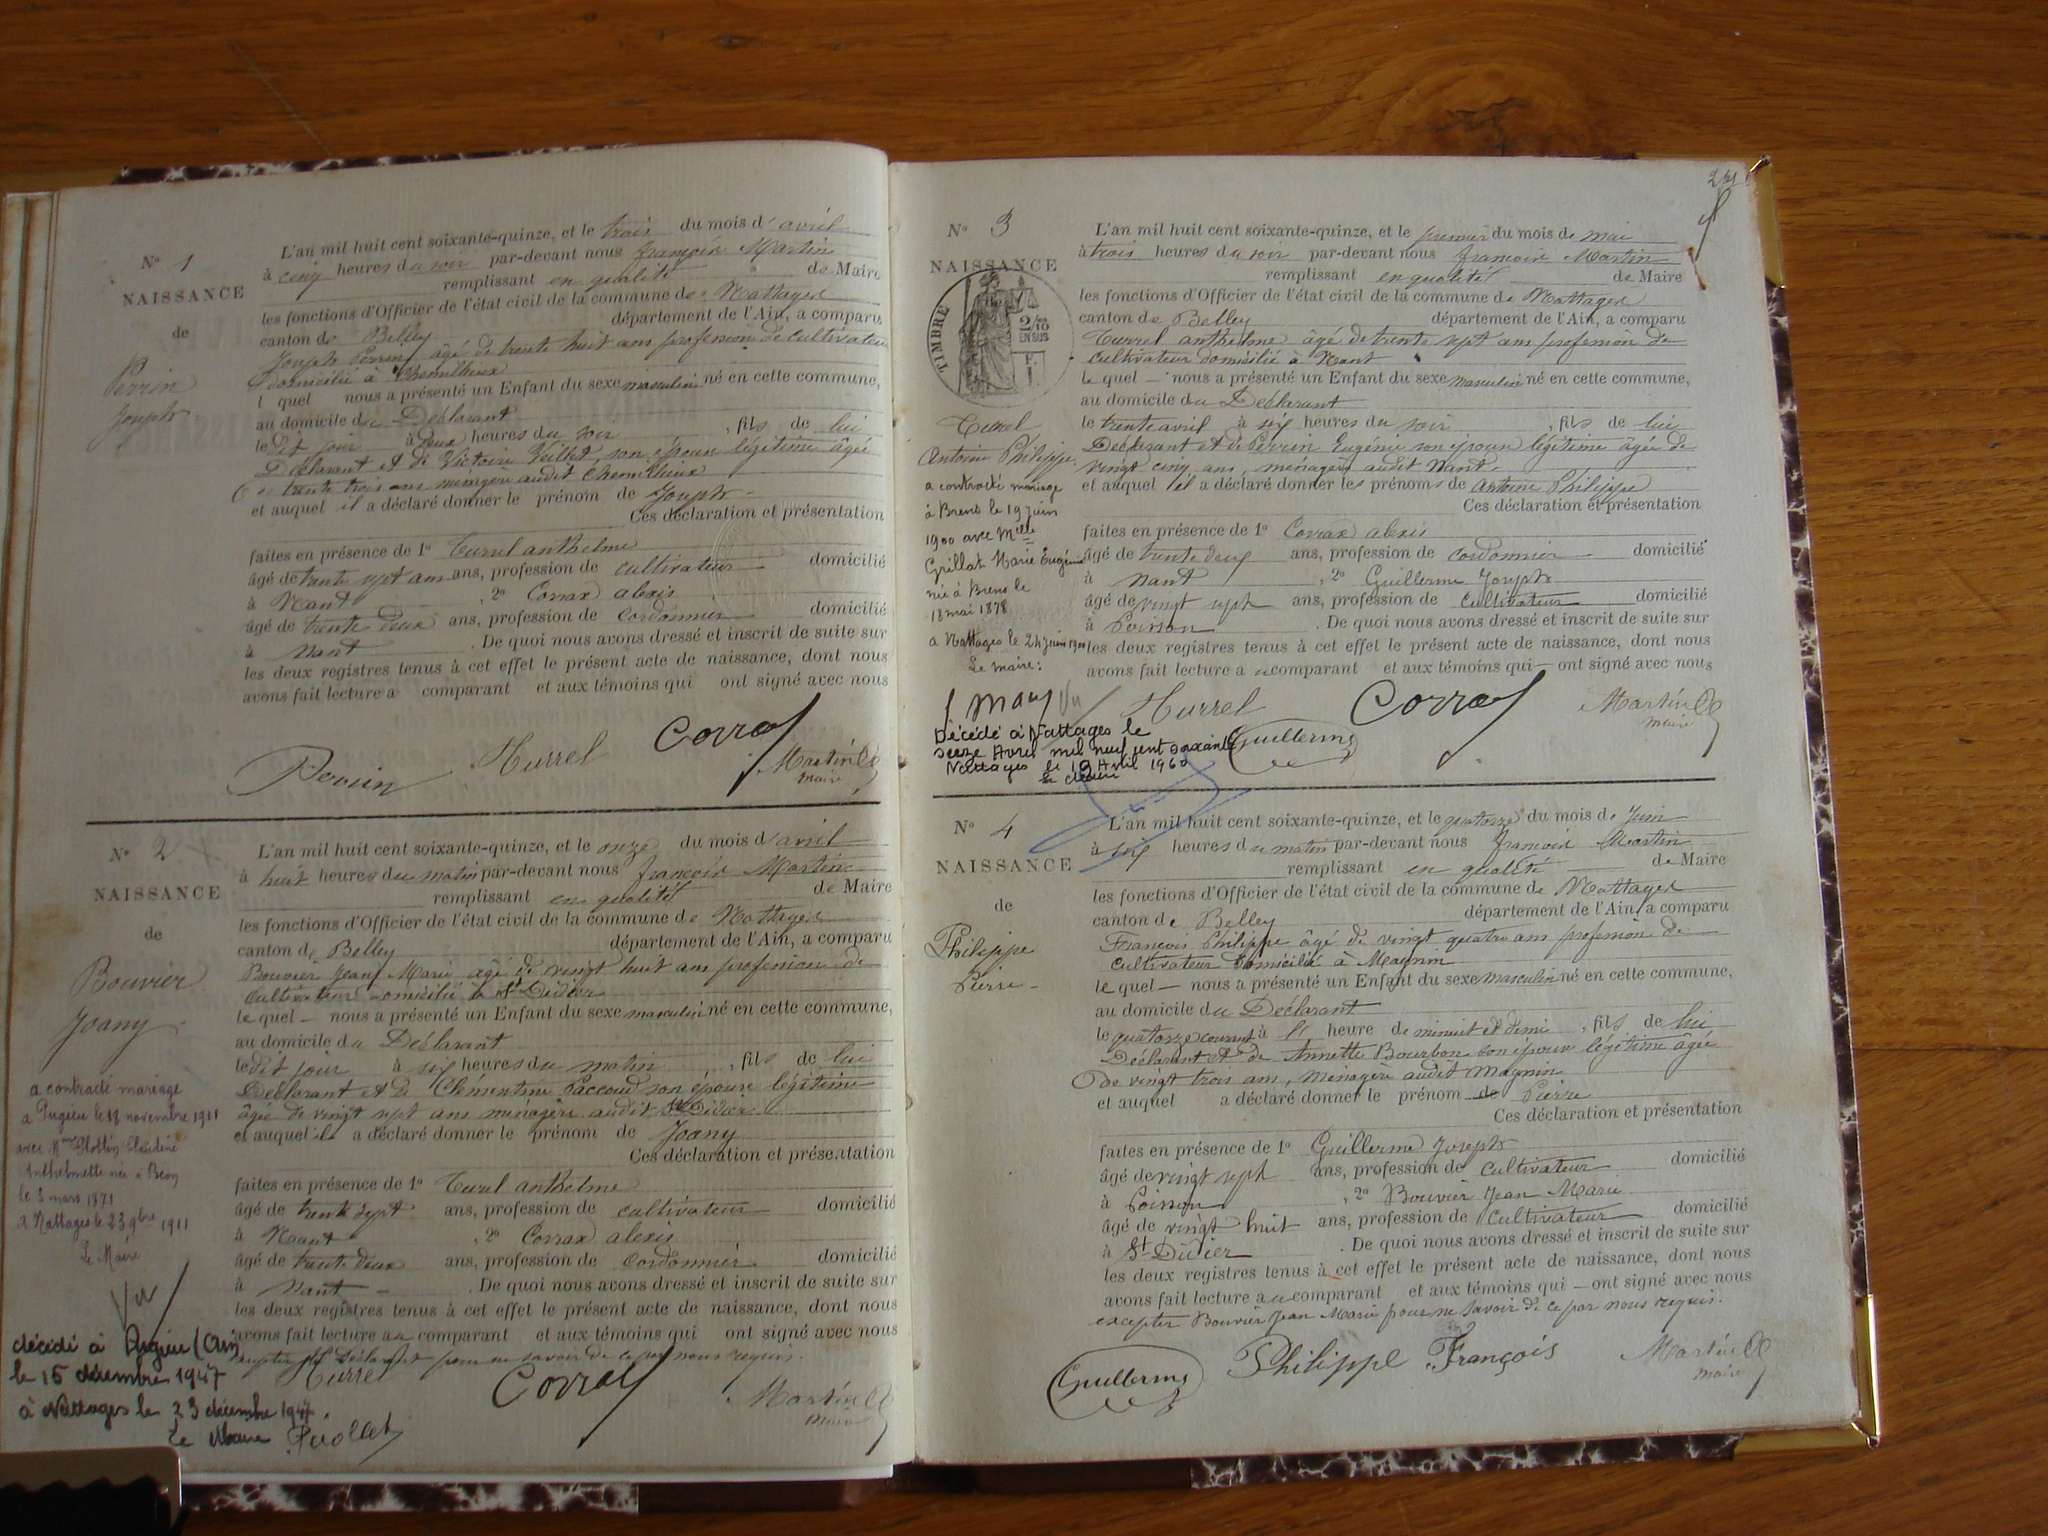 N° 1
NAISSANCE
de
Perrin
Joseph
L'an mil huit cent soixante-quinze, et le trois du mois d'avril
à cinq heures du soir par-devant nous françois Martin
remplissant en qualité de Maire
les fonctions d'Officier de l'état civil de la commune de Nattages
canton de Belley département de l'Ain, a comparu
Joseph Perrin âgé de trente huit ans profession de cultivateur
domicilié à Chemillieux
l quel nous a présenté un Enfant du sexe masculin né en cette commune,
au domicile du Déclarant
le dit jour à deux heures du soir, fils de lui
Déclarant et de Victoire Veillet, son épouse légitime âgée
de trente trois ans ménagère audit Chemillieux
et auquel il a déclaré donner le prénom de Joseph
Ces déclaration et présentation
faites en présence de 1° Turrel anthelme
âgé de trente sept ans ans, profession de cultivateur domicilié
à Nant, 2° Corrax alexis
âgé de trente deux ans, profession de cordonnier domicilié
à Nant. De quoi nous avons dressé et inscrit de suite sur
les deux registres tenus à cet effet le présent acte de naissance, dont nous
avons fait lecture a comparant et aux témoins qui ont signé avec nous
Perrin Turrel Corrax Martin
maire
N° 2
NAISSANCE
de
Bouvier
Joany
a contracté mariage
a Pugieu le 18 novembre 1911
avec Mme Claudine
Anthelmette née à Béon
le 3 mars 1871
A Nattages le 23 9bre 1911
Le Maire
Vu
décédé à Pugieu (Ain)
le 15 décembre 1947
à Nattages le 23 décembre 1947.
Le Maire
L'an mil huit cent soixante-quinze, et le onze du mois d'avril
à huit heures du matin par-devant nous françois Martin
remplissant en qualité de Maire
les fonctions d'Officier de l'état civil de la commune de Nattages
canton de Belley département de l'Ain, a comparu
Bouvier Jean Marie âgé de vingt huit ans profession de
cultivateur domicilié à St Didier
le quel — nous a présenté un Enfant du sexe masculin né en cette commune,
au domicile du Déclarant
le dit jour à six heures du matin, fils de lui
Déclarant et de Clémentine Paccoud son épouse légitime
âgée de vingt sept ans ménagère audit St Didier
et auquel il a déclaré donner le prénom de Joany
Ces déclaration et présentation
faites en présence de 1° Turrel anthelme
âgé de trente sept ans, profession de cultivateur domicilié
à Nant, 2° Corrax alexis
âgé de trente deux ans, profession de Cordonnier domicilié
à Nant. De quoi nous avons dressé et inscrit de suite sur
les deux registres tenus à cet effet le présent acte de naissance, dont nous
avons fait lecture au comparant et aux témoins qui ont signé avec nous
excepter le Déclarant pour ne savoir de ce par nous requis.
Turrel Corrax Martin
maire
N° 3
NAISSANCE
TIMBRE
2/10
EN SUS
Turrel
Antoine Philippe
a contracté mariage
à Brens le 19 juin
1900 avec Melle
Grillat Marie Eugénie
née à Brens le
18 mai 1878
a Nattages le 24 juin 1900
Le maire:
Vu
Décédé à Nattages le
seize Avril mil neuf cent soixante
Nattages le 19 Avril 1960
Le Maire
L'an mil huit cent soixante-quinze, et le premier du mois de mai
à trois heures du soir par-devant nous françois Martin
remplissant en qualité de Maire
les fonctions d'Officier de l'état civil de la commune de Nattages
canton de Belley département de l'Ain, a comparu
Turrel anthelme âgé de trente sept ans profession de
cultivateur domicilié à Nant
le quel — nous a présenté un Enfant du sexe masculin né en cette commune,
au domicile du Déclarant
le trente avril à six heures du soir, fils de lui
Déclarant et de Perrin Eugénie son épouse légitime âgée de
vingt cinq ans, ménagère audit Nant.
et auquel il a déclaré donner les prénoms de Antoine Philippe
Ces déclaration et présentation
faites en présence de 1° Corrax alexis
âgé de trente deux ans, profession de cordonnier domicilié
à Nant, 2° Guillerme Joseph
âgé de vingt sept ans, profession de cultivateur domicilié
à Poisson. De quoi nous avons dressé et inscrit de suite sur
les deux registres tenus à cet effet le présent acte de naissance, dont nous
avons fait lecture au comparant et aux témoins qui — ont signé avec nous
Turrel Corrax Martin
maire
Guillerme
N° 4
NAISSANCE
de
Philippe
Pierre
L'an mil huit cent soixante-quinze, et le quatorze du mois de Juin
à six heures du matin par-devant nous françois Martin
remplissant en qualité de Maire
les fonctions d'Officier de l'état civil de la commune de Nattages
canton de Belley département de l'Ain, a comparu
François Philippe âgé de vingt quatre ans profession de
cultivateur domicilié à Magnin
le quel — nous a présenté un Enfant du sexe masculin né en cette commune,
au domicile du Déclarant
le quatorze courant à l' heure de minuit et demi, fils de lui
Déclarant et de Annette Bourbon son épouse légitime âgée
de vingt trois ans, ménagère audit Magnin
et auquel a déclaré donner le prénom de Pierre
Ces déclaration et présentation
faites en présence de 1° Guillerme Joseph
âgé de vingt sept ans, profession de Cultivateur domicilié
à Poisson, 2° Bouvier Jean Marie
âgé de vingt huit ans, profession de Cultivateur domicilié
à St Didier. De quoi nous avons dressé et inscrit de suite sur
les deux registres tenus à cet effet le présent acte de naissance, dont nous
avons fait lecture au comparant et aux témoins qui — ont signé avec nous
excepter Bouvier Jean Marie pour ne savoir de ce par nous requis.
Guillerme Philippe François Martin
maire